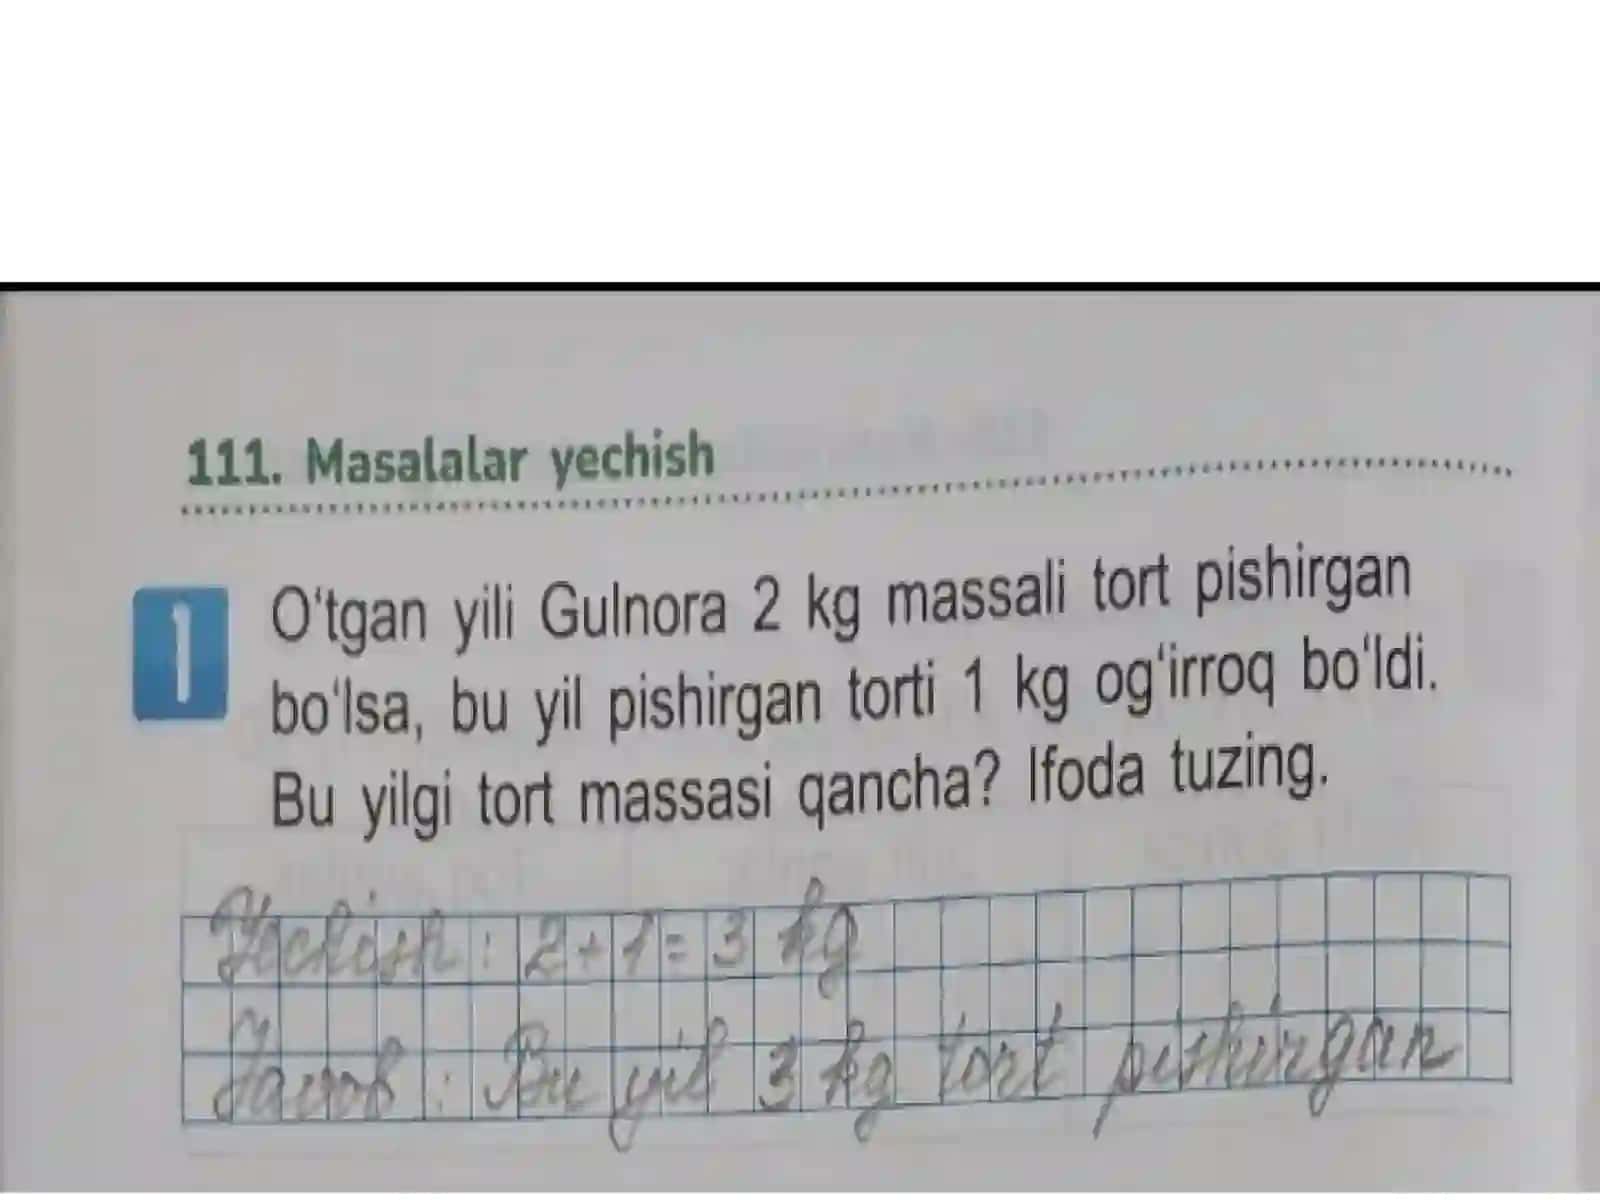 111. Masalalar yechish
1
O'tgan yili Gulnora 2 kg massali tort pishirgan
bo'lsa, bu yil pishirgan torti 1 kg og'irroq bo'ldi.
Bu yilgi tort massasi qancha? Ifoda tuzing.
Yechish: 2+1=3 kg
Javob: Bu yil 3 kg tort pishirgan